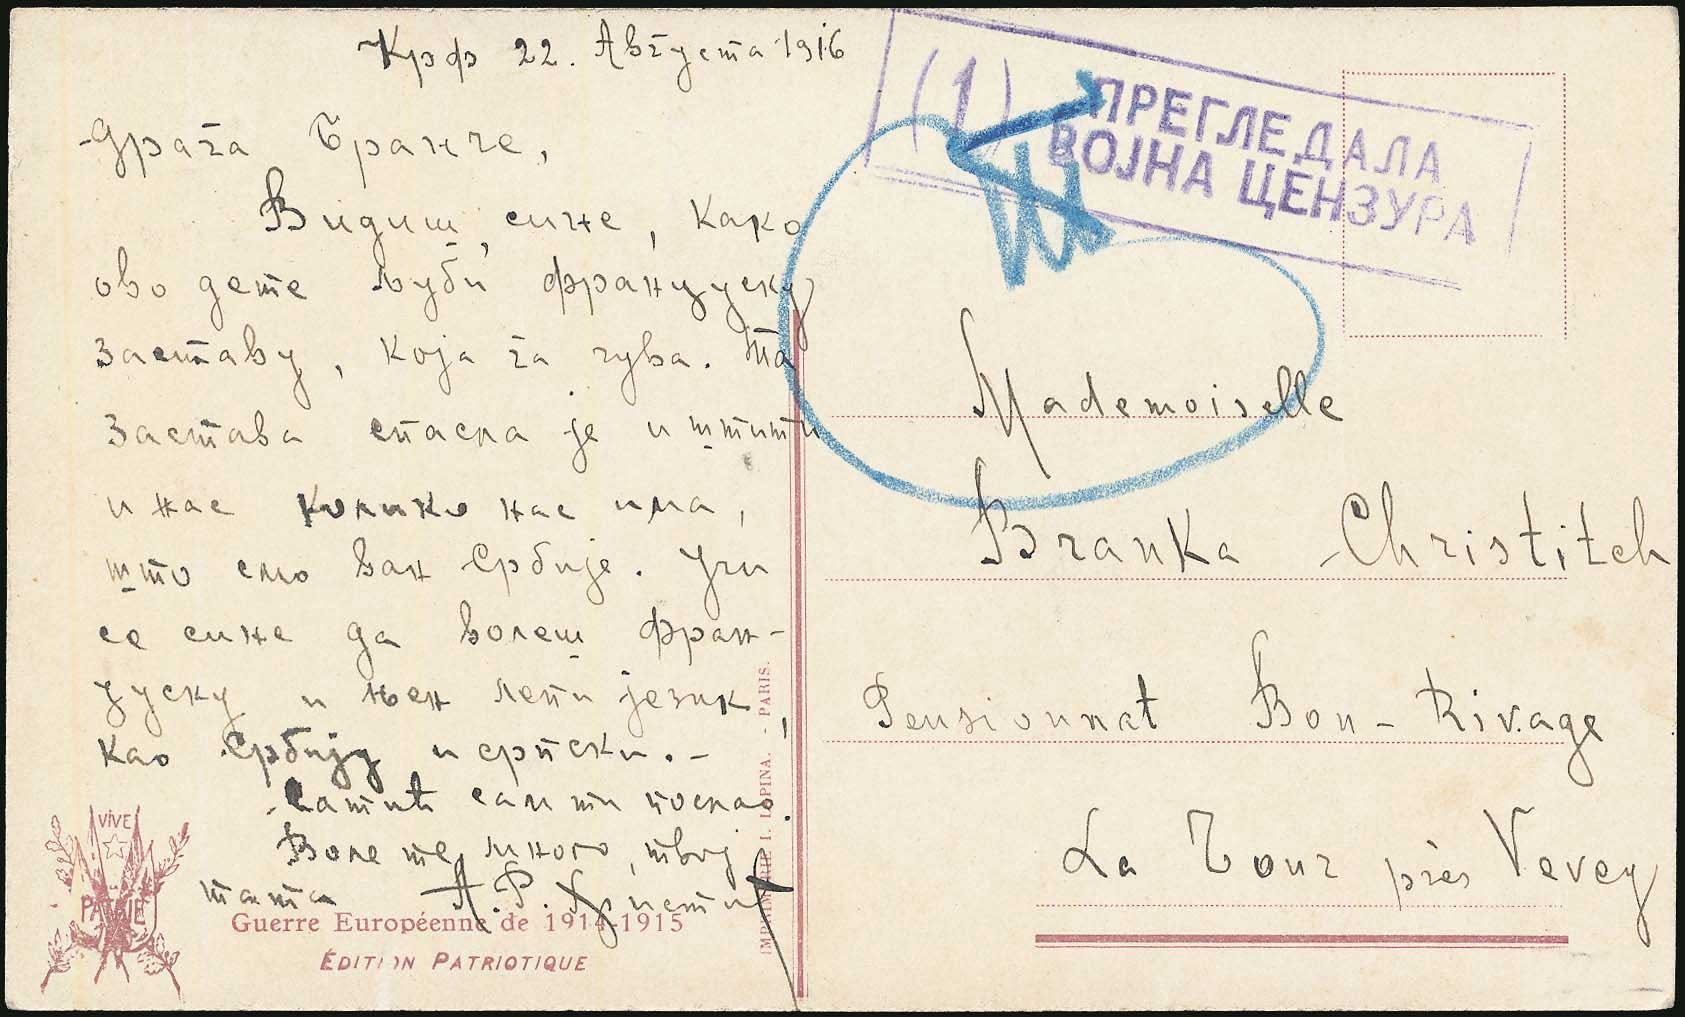 Крф 22. Августа 1916
Драга Бранче,
Видиш, сине, како
ово дете љуби француску
заставу, која га чува. Та
застава спасла је и штити
и нас колико нас има,
што смо ван Србије. Учи
се сине да волеш Фран-
цуску и њен лепи језик,
као Србију и српски.-
сам ти послао.
Воле те много, твој
тата А. Р. Христић
ПРЕГЛЕДАЛА
(1) ВОЈНА ЦЕНЗУРА
Mademoiselle
Branka Christitch
Pensionnat Bon-Rivage
La Tour près Vevey
VIVE
LA
PATRIE
Guerre Européenne de 1914-1915
ÉDITION PATRIOTIQUE
IMPRIMERIE I. LAPINA. - PARIS.